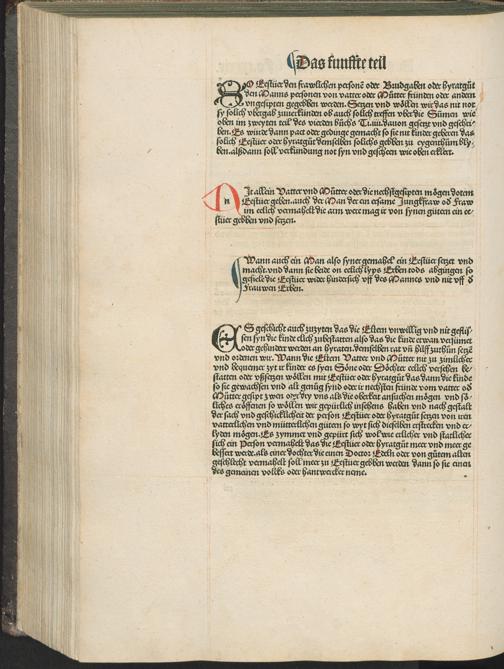 Das funffte teil
SO Eestüer den frawlichen personē oder Brudgaben oder hyratgüt
den Manns personen von vatter oder Mütter fründen oder andern
vngesipten gegebben werden. Setzen vnd wöllen wir das nit not
sy solich vbergab zuuerkünden ob auch solich treffen vber die Sümen wie
oben im zweyten teil des vierden büchs Ti.iiii.dauon gesetzt vnd geschri
ben. Es würde dann pact oder gedinge gemacht so sie nit kinder geberen das
solich Eestüer oder hyratgüt demselben solichs gebben zu eygenthüm bly
ben. alßdann soll verkündung not syn vnd gescheen wie oben erklert.
Nit allein Vatter vnd Mütter oder die nechstgesipten mögen dotem
n Eestüer geben. auch der Man der ein ersame Jungkfraw oď Fraw
im eelich vermahelt die arm were mag ir von synen gütern ein ee
stüer gebben vnd setzen.
Wann auch ein Man also syner gemahel ein Eestüer setzet vnd
macht. vnd dann sie beide on eelich lyps Erben tods abgingen so
gefiele die Eestüer wider hindersich vff des Mannes vnd nit vff ď
Frauwen Erben.
ES geschicht auch zuzyten das die Eltern vnwillig vnd nit gefliß
sen syn die kinde elich zubestatten also das die kinde etwan versümet
oder gehindert werden an hyraten. demselben rat vn̄ hilff zuthün setzē
vnd ordenen wir. Wann die Eltern Vatter vnd Mütter nit zu zimlicher
vnd bequemer zyt ir kinder es syen Söne oder Döchter eelich versehen be
statten oder vßsetzen wöllen mit Eestüer oder hyratgüt das dann die kinde
so sie gewachsen vnd alt genüg synd oder ir nechsten fründe vom vatter oď
Mütter gesipt zwen oder dry vns als die oberkeit ansüchen mögen vnd sö
liches eröffenen so wöllen wir gepürlich insehens haben vnd nach gestalt
der sach vnd geschicklicheit der person Eestüer oder hyratgüt setzen von iren
vatterlichen vnd mütterlichen gütern so wyt sich dieselben erstrecken vnd er
lyden mögen. Es zymmet vnd gepürt sich wol wie erlicher vnd statlicher
sich ein Person vermahelt das die Eestüer oder hyratgüt meer vnd meer ge
bessert werde. als einer dochter die einen Doctor Edeln oder von gütem alten
geschlecht vermahelt soll meer zu Eestüer gebben werden dann so sie einen
des gemeinen volcks oder hantwercker neme.